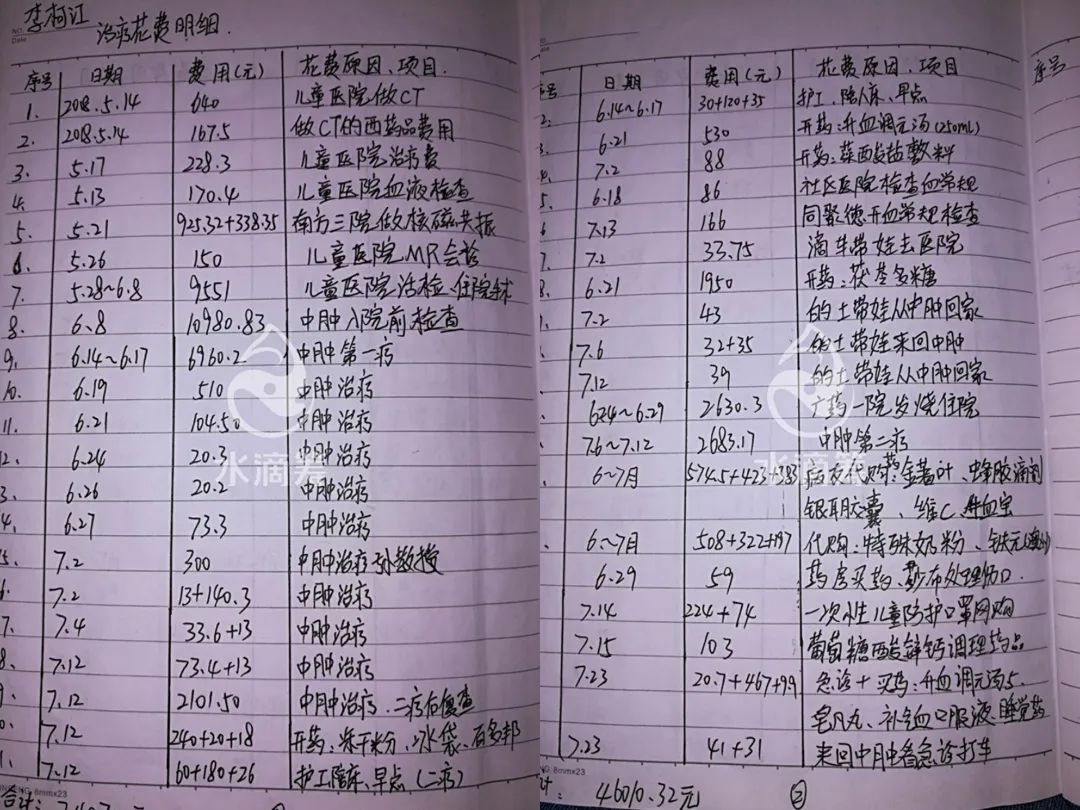 李柯江
治疗花费明细
序号 日期 费用(元) 花费原因、项目
1. 2018.5.14 640 儿童医院做CT
2. 2018.5.14 167.5 做CT的西药品费用
3. 5.17 228.3 儿童医院治疗费
4. 5.13 170.4 儿童医院血液检查
5. 5.21 925.32+338.35 南方三院做核磁共振
6. 5.26 150 儿童医院MR会诊
7. 5.28~6.8 9551 儿童医院活检、住院手术
8. 6.8 10980.83 中肿入院前检查
9. 6.14~6.17 6960.2 中肿第一疗
10. 6.19 510 中肿治疗
11. 6.21 104.50 中肿治疗
12. 6.24 20.3 中肿治疗
3. 6.26 20.2 中肿治疗
4. 6.27 73.3 中肿治疗
5. 7.2 300 中肿治疗孙教授
6. 7.2 13+140.3 中肿治疗
7. 7.4 33.6+13 中肿治疗
8. 7.12 73.4+13 中肿治疗
7.12 2101.50 中肿治疗、二疗后复查
7.12 240+20+18 开药:冻干粉、冰袋、百多邦
1. 7.12 60+180+26 护工陪床、早点(二疗)
合计:
NO. 8mmx23
水滴筹
序号 日期 费用(元) 花费原因、项目
6.14~6.17 30+120+35 护工、陪人床、早点
6.21 530 开药:升血调元汤(250ml)
7.2 88 开药:藻酸盐敷料
6.18 86 社区医院检查血常规
7.13 166 同聚德开血常规检查
7.2 33.75 滴车带娃去医院
6.21 1950 开药:茯苓多糖
7.2 43 的土带娃从中肿回家
7.6 32+35 的土带娃来回中肿
7.12 39 的土带娃从中肿回家
6.24~6.29 2630.3 广药一院发烧住院
7.6~7.12 2683.17 中肿第二疗
6~7月 574.5+423+383 病友代购药:金薯叶、蜂胶滴剂
银耳胶囊、维C、升血宝
6~7月 508+322+197 代购:特殊奶粉、铁元
6.29 59 药房买药、纱布处理伤口
7.14 224+74 一次性儿童防护口罩网购
7.15 103 葡萄糖酸锌钙调理药品
7.23 20.7+467+99 急诊+买药:升血调元汤
皂凡丸、补血口服液、睡觉药
7.23 41+31 来回中肿看急诊打车
合计: 46010.32元 ②
NO. 8mmx23
水滴筹
序号